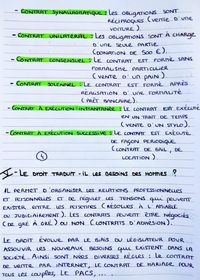 - CONTRAT SYNALLAGMATIQUE : LES OBLIGATIONS SONT
RÉCIPROQUES (VENTE D'UNE
VOITURE).
- CONTRAT UNILATÉRAL : LES OBLIGATIONS SONT À CHARGE
D'UNE SEULE PARTIE
(DONATION DE 500 €)
- CONTRAT CONSENSUEL : LE CONTRAT EST FORMÉ SANS
FORMALISME PARTICULIER
(VENTE D'UN PAIN).
- CONTRAT SOLENNEL : LE CONTRAT EST FORMÉ APRÈS
RÉALISATION D'UNE FORMALITÉ
(PRÊT BANCAIRE).
- CONTRAT À EXÉCUTION INSTANTANÉE : LE CONTRAT EST EXÉCUTÉ
EN UN TRAIT DE TEMPS
(VENTE D'UN STYLO).
- CONTRAT À EXÉCUTION SUCCESSIVE : LE CONTRAT EST EXÉCUTÉ
DE FAÇON PÉRIODIQUE
(CONTRAT DE BAIL, DE
LOCATION)
I - LE DROIT TRADUIT-IL LES BESOINS DES HOMMES ?
IL PERMET D'ORGANISER LES RELATIONS PROFESSIONNELLES
ET PERSONNELLES ET DE RÉGULER LES TENSIONS QUI PEUVENT
EXISTER ENTRE LES HOMMES (RÉSOLUES À L'AMIABLE
OU JUDICIAIREMENT). LES CONTRATS PEUVENT ÊTRE NÉGOCIÉS
(DE GRÉ À GRÉ) OU NON (CONTRATS D'ADHÉSION).
LE DROIT ÉVOLUE PAR LE BIAIS DU LÉGISLATEUR POUR
ASSOUVIR LES NOUVEAUX BESOINS QUI EXISTENT DANS LA
SOCIÉTÉ. AINSI SONT NÉES DIVERSES RÈGLES : LE CONTRAT
DE VENTE PAR INTERNET, LE CONTRAT DE MARIAGE POUR
TOUS LES COUPLES, LE PACS, ....